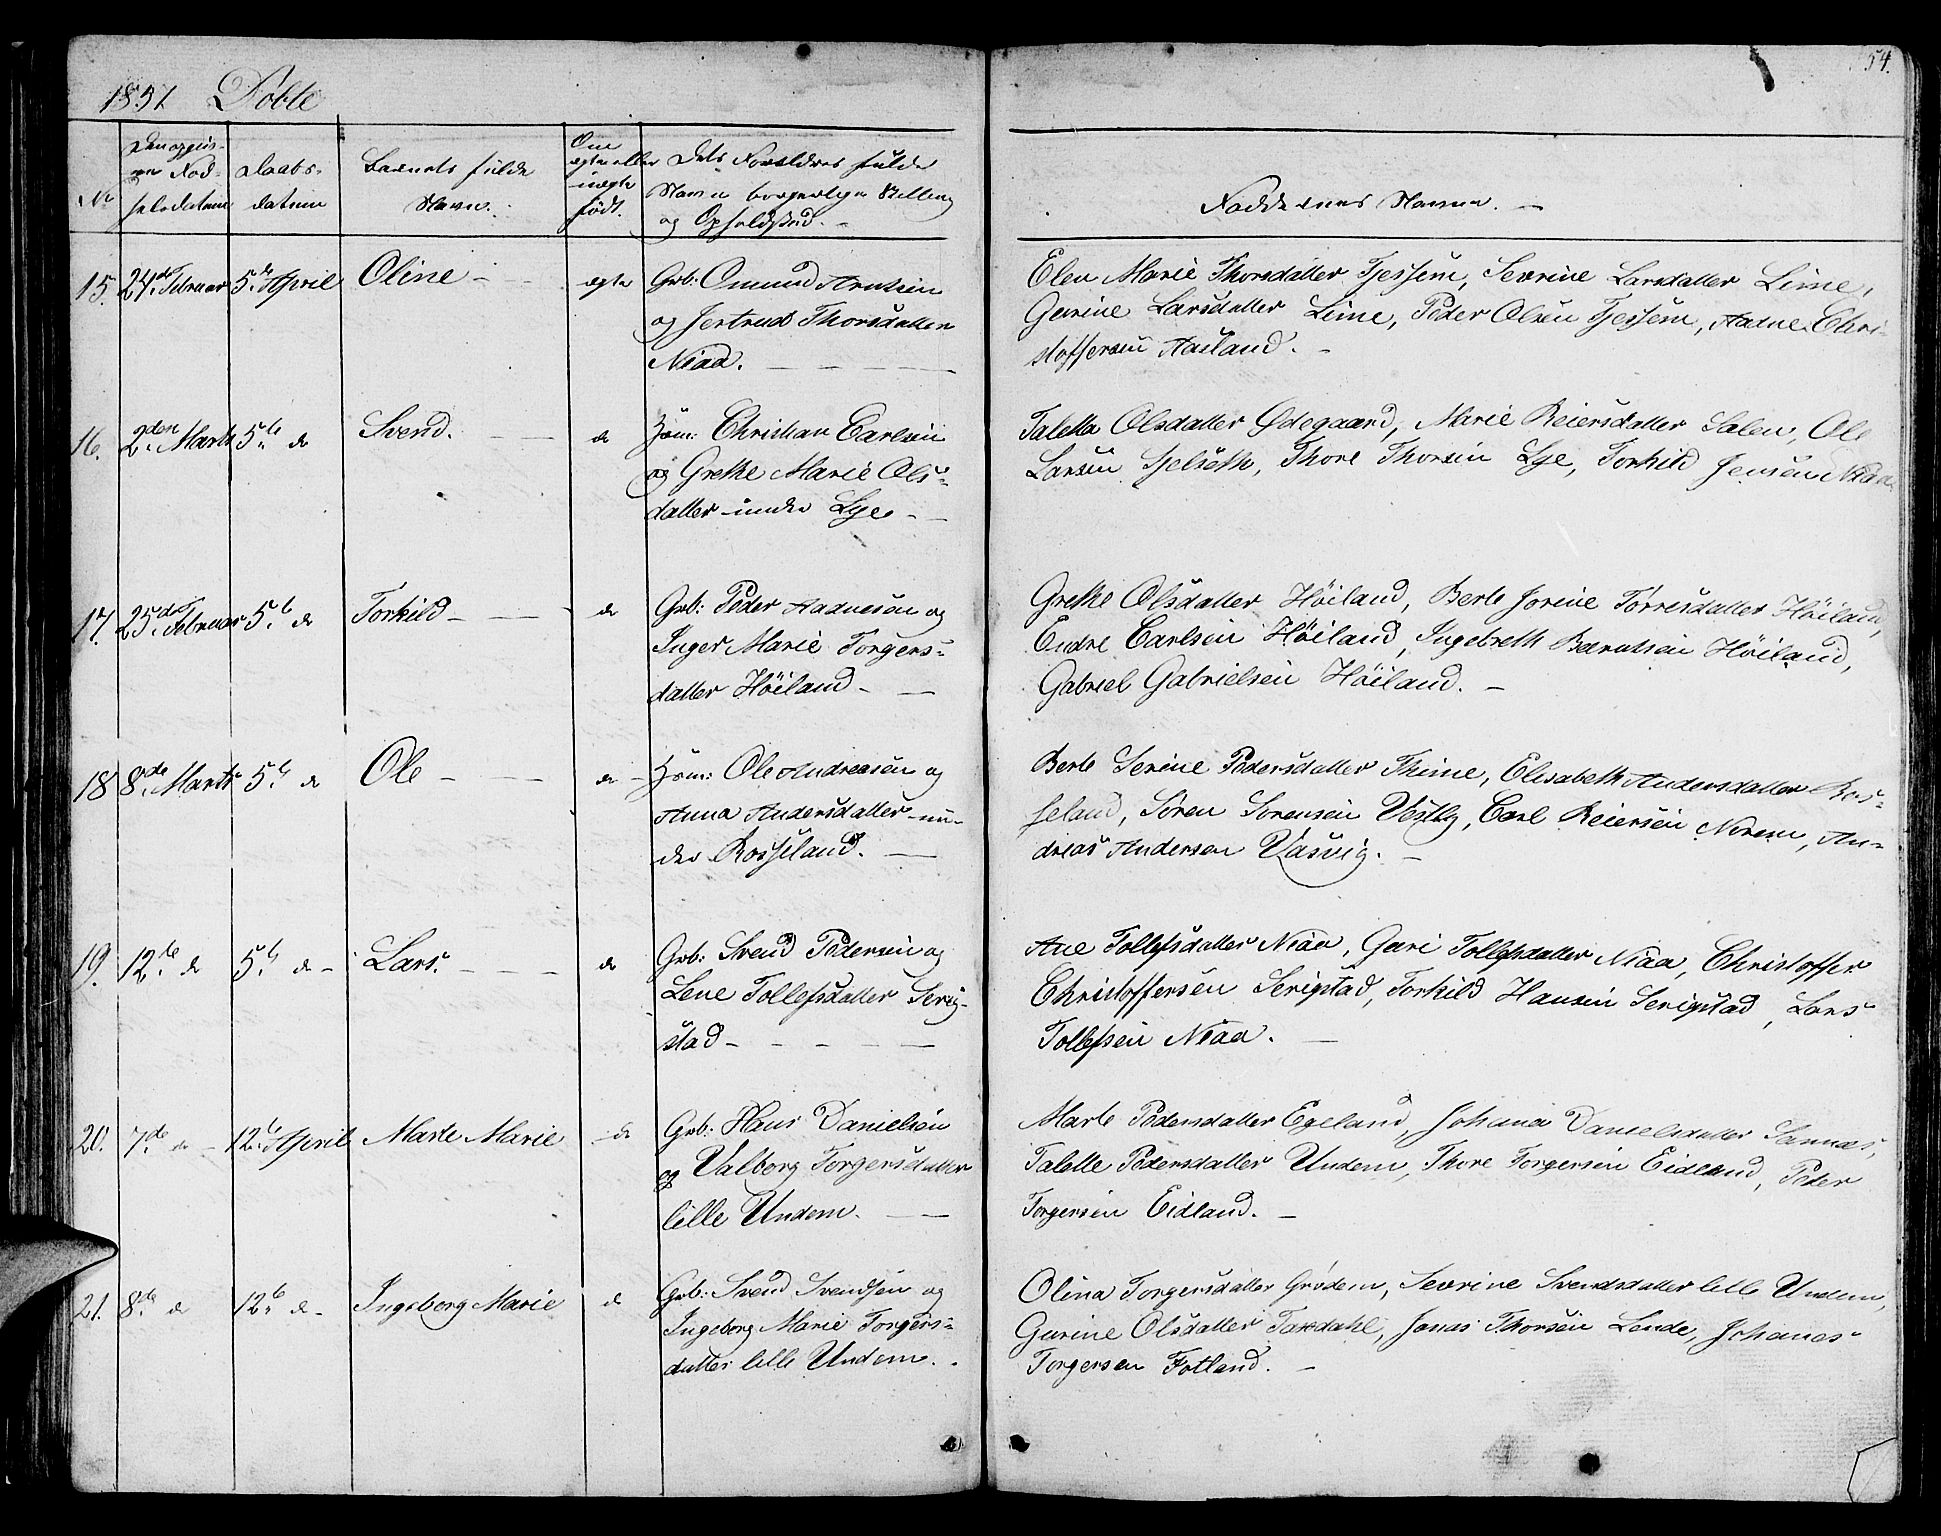 1857 Døbte
54.
No
Den opgivne Fødselsdatum
Daabsdatum
Barnets fulde Navn.
Om ægte eller uægte født.
Dets Forældres fulde Navn borgerlige Stilling og Opholdsted. -
Faddernes Navne. -
15. 24de Februar 5te April Oline - ægte Grb: Omund Arntsen
og Jertrud Thorsdatter
Niaa.
Elen Marie Thorsdatter Tjessem, Sevrine Larsdatter Lime,
Gurine Larsdatter Lime, Peder Olsen Tjessem, Aadne Chri-
stoffersen Aasland. -
16. 2den Marts 5te do Svend. - do Huusm: Christian Carlsen
og Grethe Marie Ols-
datter under Lye -
Taletta Olsdatter Ødegaard, Marie Reiersdatter Salen, Ole
Larsen Sjelseth, Thore Thorsen Lye, Torkild Jensen Niaa.
17. 25de Februar 5te do Torkild - do Grb: Peder Aadnesøn og
Inger Marie Torgers-
datter Høiland -
Grethe Olsdatter Høiland, Berte Jorine Tørresdatter Høiland,
Endre Carlsen Høiland, Ingebreth Berntsen Høiland,
Gabriel Gabrielsen Høiland. -
18 8de Marts 5te do Ole - do - Huusm: Ole Andreasøn og
Anna Andersdatter un-
der Rosseland. -
Berte Serine Pedersdatter Thime, Elisabeth Andersdatter Ros-
seland, Søren Sørensen Vestly, Carl Reiersen Norem, An-
dreas Andersen Vasvig. -
19. 12te do 5te do - Lars. - do Grb: Svend Pedersen og
Lene Tollefsdatter Serig-
stad -
Ane Tollefsdatter Niaa, Guri Tollefsdatter Niaa, Christoffer
Christoffersen Serigstad, Torkild Hansen Serigstad, Lars
Tollefsen Niaa. -
20. 7de do - 12te April Marte Marie - do Grb: Hans Danielsen
og Valborg Torgersdatter
lille Undem. -
Marte Pedersdatter Egeland, Johana Danielsdatter Sannes,
Talette Pedersdatter Undem, Thore Torgersen Eidland, Peder
Torgersen Eidland. -
21. 8de do 12te do - Ingeborg Marie do Grb: Svend Svendsen og
Ingeborg Marie Torgers-
datter lille Undem. -
Olina Torgersdatter Grødem, Sevrine Svendsdatter lille Undem,
Gurine Olsdatter Taxdahl, Jonas Thorsen Lende, Johanes
Torgersen Fotland. -